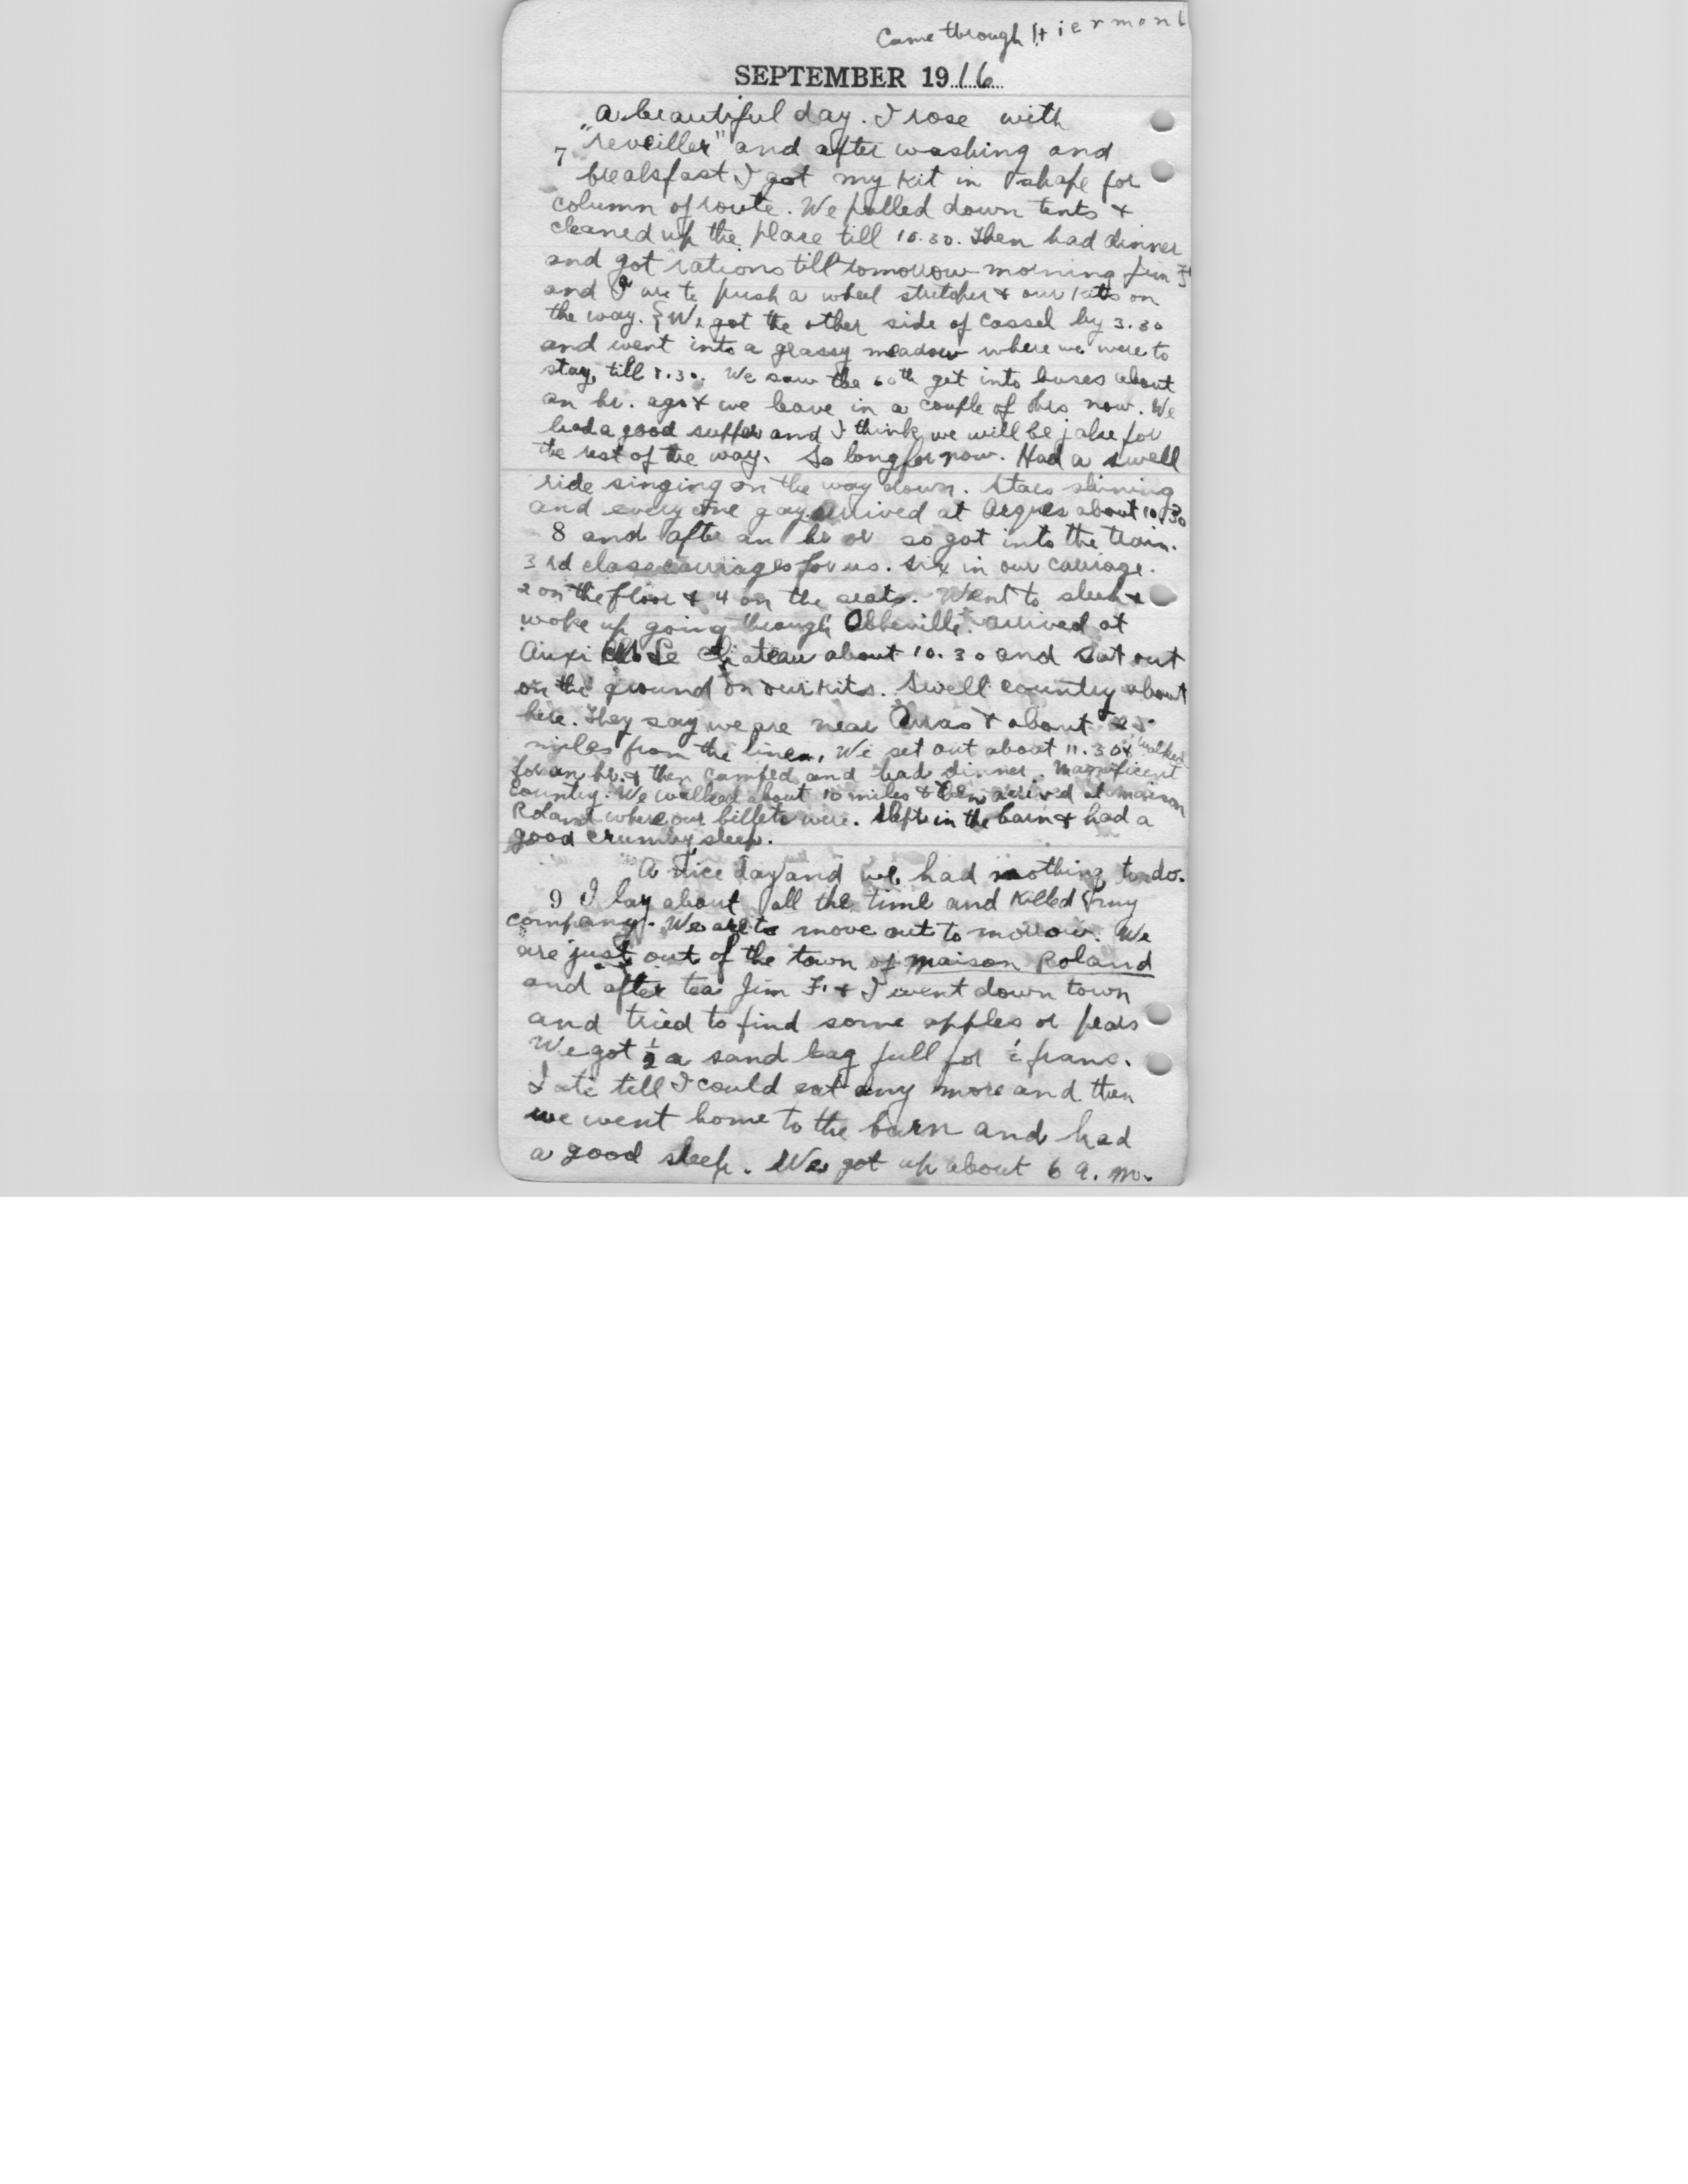 Came through Hiermont
SEPTEMBER 1916
A beautiful day. I rose with
"reveiller" and after washing and
7
breakfast I got my kit in shape for
column of route. We pulled down tents &
cleaned up the place till 10.30. Then had dinner
and got rations till tomorrow morning Jim F
and I are to push a wheel stretcher & our kits on
the way. We got the other side of Cassel by 3.30
and went into a grassy meadow where we were to
stay, till 8.30. We saw the 60th get into buses about
an hr. ago & we leave in a couple of hrs now. We
had a good supper and I think we will be jake for
the rest of the way. So long for now. Had a swell
ride singing on the way down. Stars shining
and everyone gay. Arrived at Arques about 10.30
8 and after an hr or so got into the train.
3rd class carriages for us. Six in our carriage.
2 on the floor & 4 on the seats. Went to sleep &
woke up going through Abbeville. Arrived at
Auxi Le Chateau about 10.30 and sat out
on the ground on our kits. Swell country about
here. They say we are near Arras & about
miles from the lines. We set out about 11.30 & walked
for an hr. & then camped and had dinner. Magnificent
country. We walked about 10 miles & then arrived at Maison
Roland where our billets were. Slept in the barn & had a
good crumby sleep.
A nice day and we had nothing to do.
9 I lay about all the time and killed my
company. We are to move out to morrow. We
are just out of the town of Maison Roland
and after tea Jim F. & I went down town
and tried to find some apples or pears
We got ½ a sand bag full for franc.
I ate till I could eat any more and then
we went home to the barn and had
a good sleep. We got up about 6 a.m.